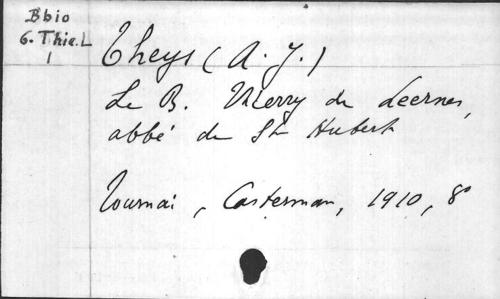 Bbio
6. Thie. L
1
Theys (A. J.)
Le B. Thierry de Leernes,
abbé de St Hubert
Tournai, Casterman, 1910, 8°